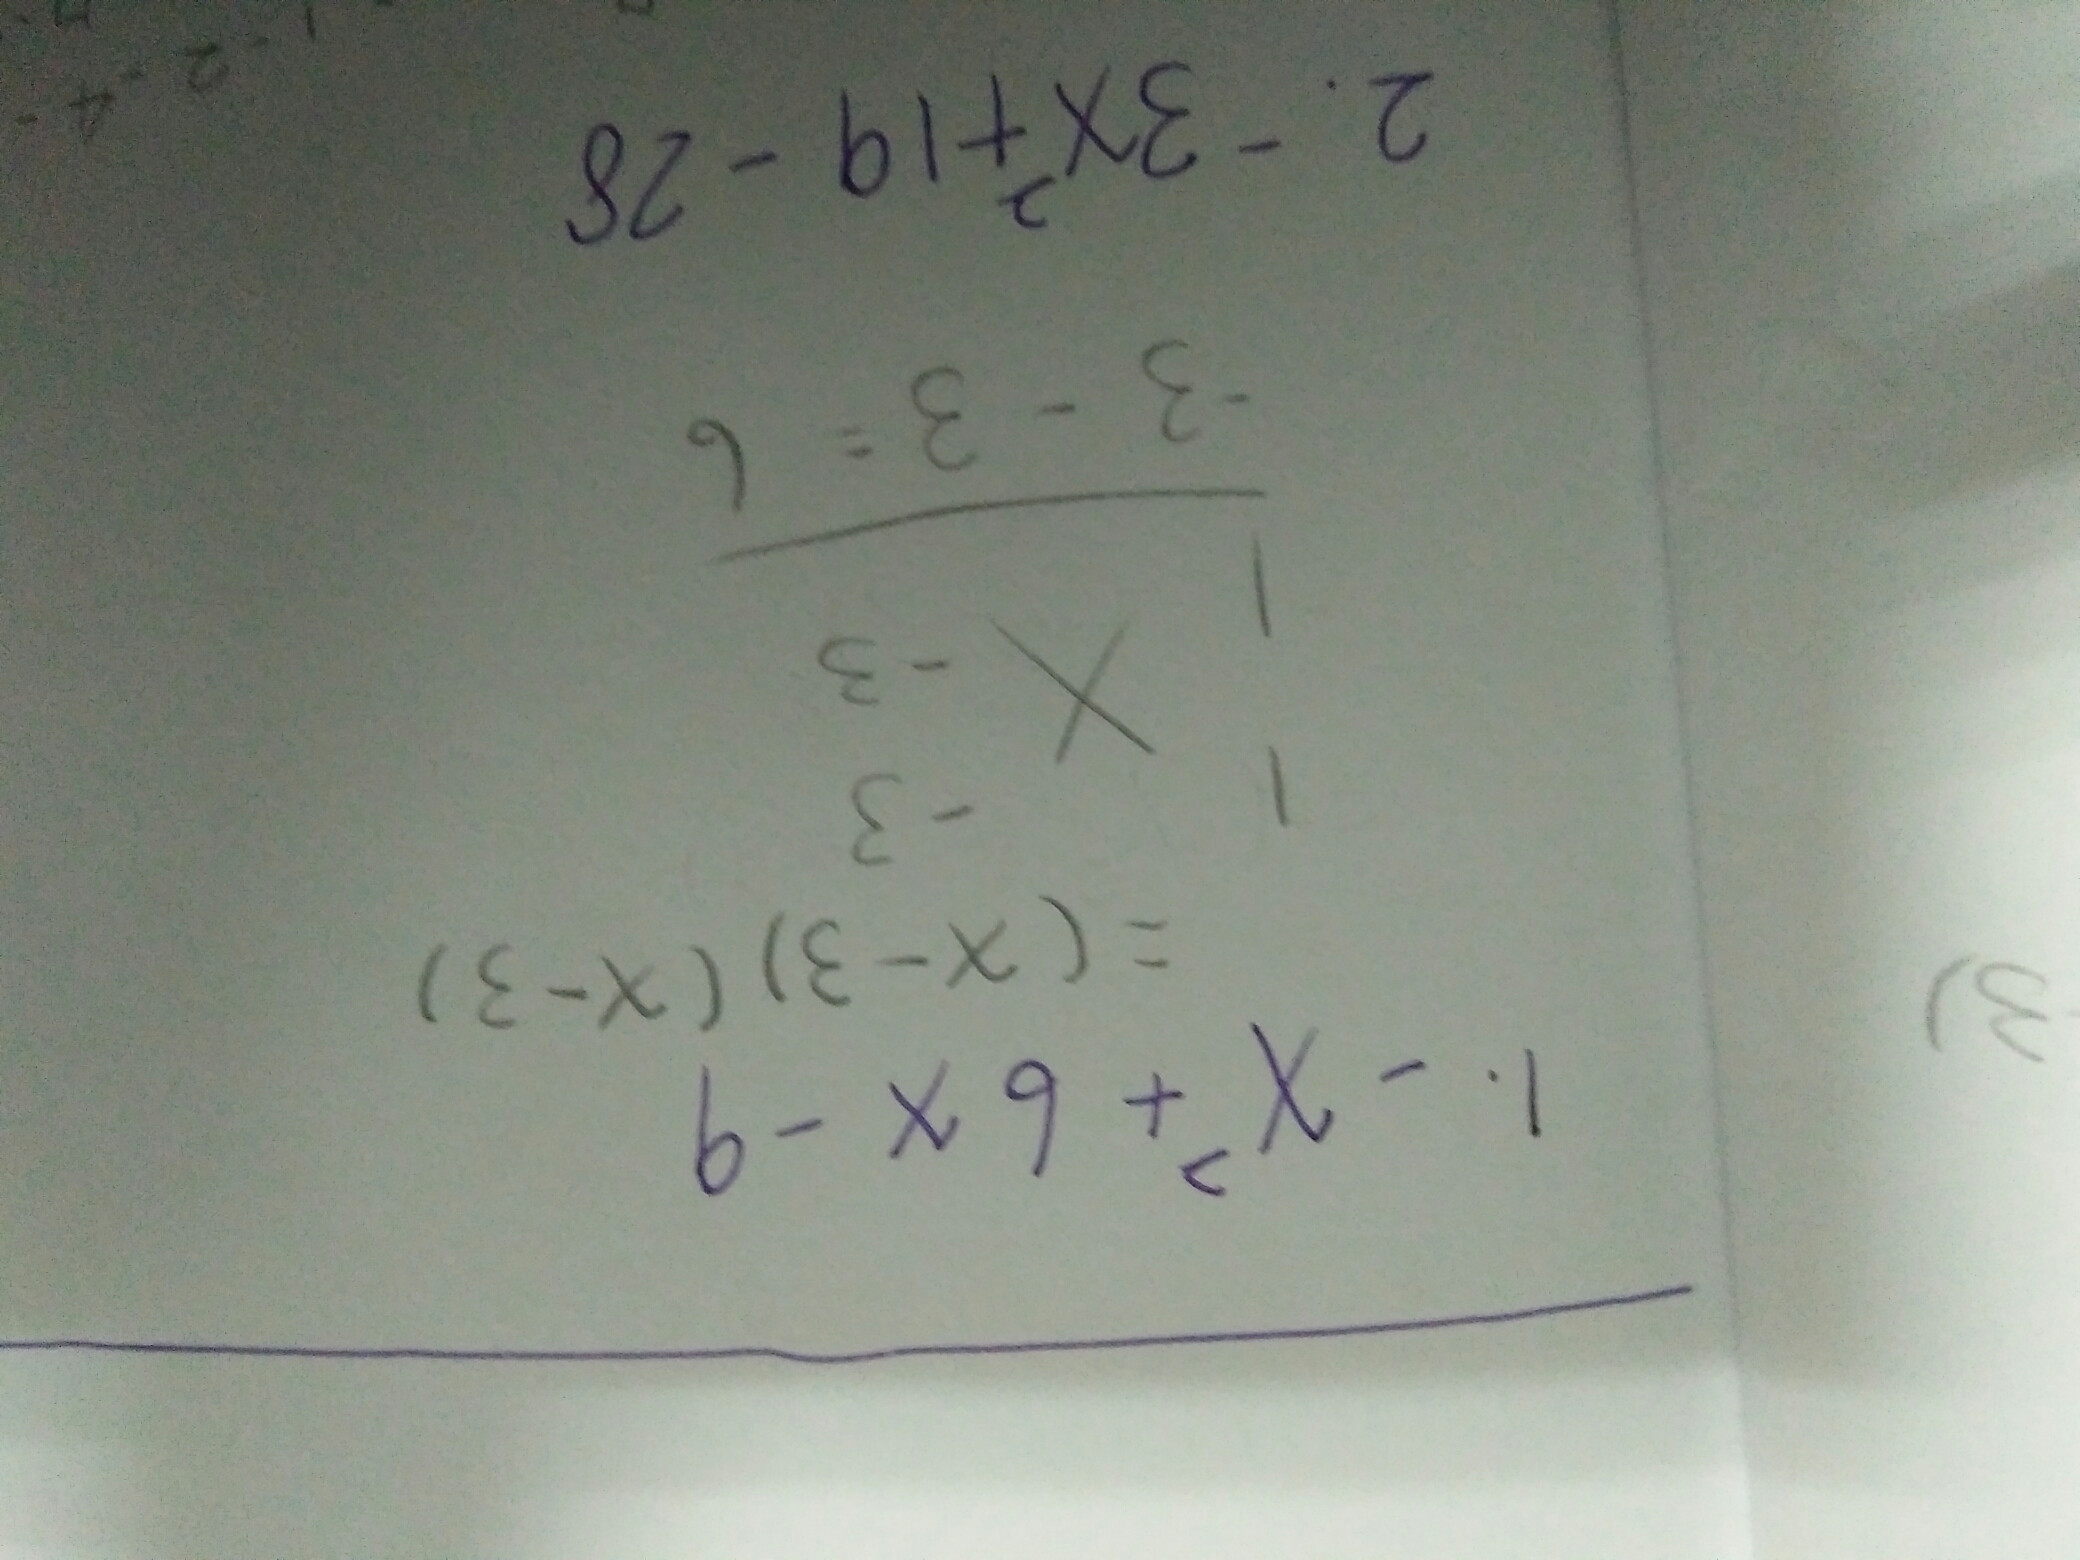 1. -x² + 6x - 9
= (x-3)(x-3)
1 -3
1 -3
-3 - 3 = 6
2. -3x²+19 - 28